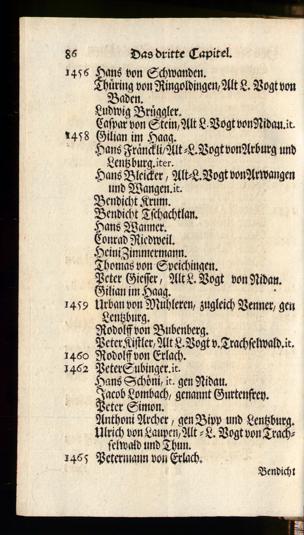 86 Das dritte Capitel.
1456 Hans von Schwanden.
Thüring von Ringoldingen, Alt L. Vogt von
Baden.
Ludwig Brüggler.
Caspar von Stein, Alt L. Vogt von Nidau. it.
1458 Gilian im Haag.
Hans Fränckli, Alt-L. Vogt von Arburg und
Lentzburg. iter.
Hans Bleicker, Alt-L. Vogt von Arwangen
und Wangen. it.
Bendicht Krum.
Bendicht Tschachtlan.
Hans Wanner.
Conrad Riedweil.
Heini Zimmermann.
Thomas von Speichingen.
Peter Giesser, Alt L. Vogt von Nidau.
Gilian im Haag.
1459 Urban von Muhleren, zugleich Venner, gen
Lentzburg.
Rodolff von Bubenberg.
Peter Kistler, Alt L. Vogt v. Trachselwald. it.
1460 Rodolff von Erlach.
1462 Peter Subinger. it.
Hans Schöni, it. gen Nidau.
Jacob Lombach, genannt Gurtenfrey.
Peter Simon.
Anthoni Archer, gen Bipp und Lentzburg.
Ulrich von Laupen, Alt-L. Vogt von Trach-
selwald und Thun.
1465 Petermann von Erlach.
Bendicht